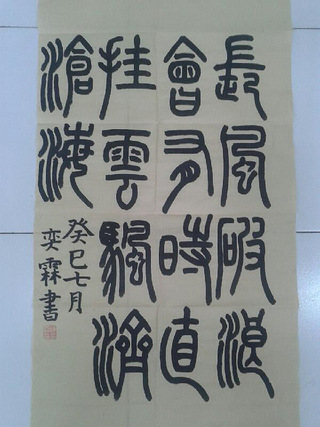 長風破浪
會有時直
挂雲颿濟
滄海
癸巳七月
奕霖書